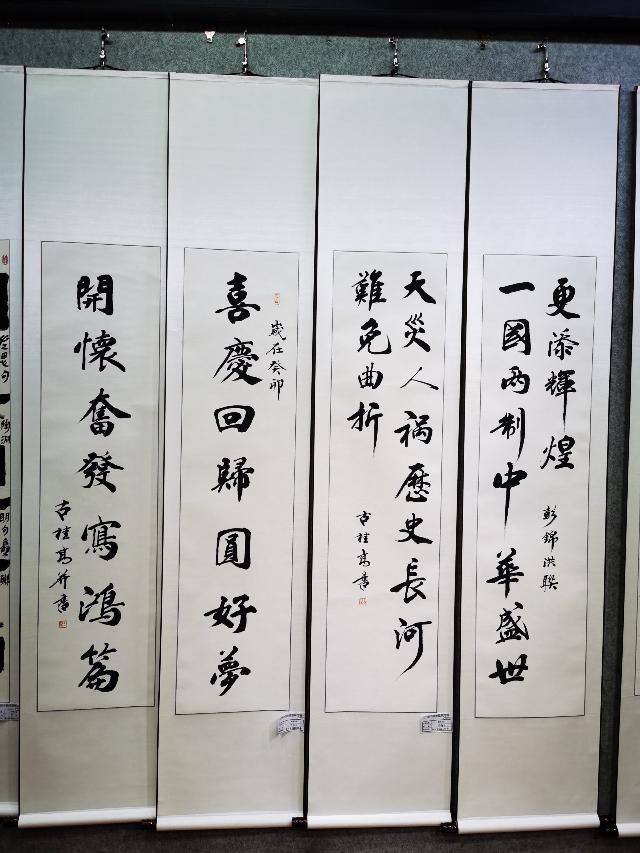 一國兩制中華盛世
更添輝煌
彭錦洪聯
天災人祸歷史長河
難免曲折
古桂高書
歲在癸卯
喜慶回歸圓好夢
開懷奮發寫鴻篇
古桂高并書